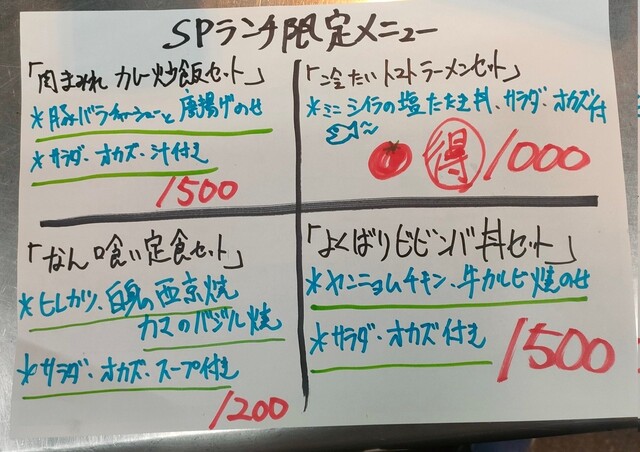 SPランチ限定メニュー
「肉まみれ カレー炒飯セット」
*豚バラチャーシューと唐揚げのせ
*サラダ・オカズ・汁付き
1500
「冷たいトマトラーメンセット」
*ミニシイラの塩たたき丼、サラダ、オカズ付
得 1000
「なん喰い定食セット」
*ヒレカツ、白身の西京焼
カマのバジル焼
*サラダ・オカズ・スープ付き
1200
「よくばりビビンバ丼セット」
*ヤンニョムチキン、牛カルビ焼のせ
*サラダ・オカズ付き
1500